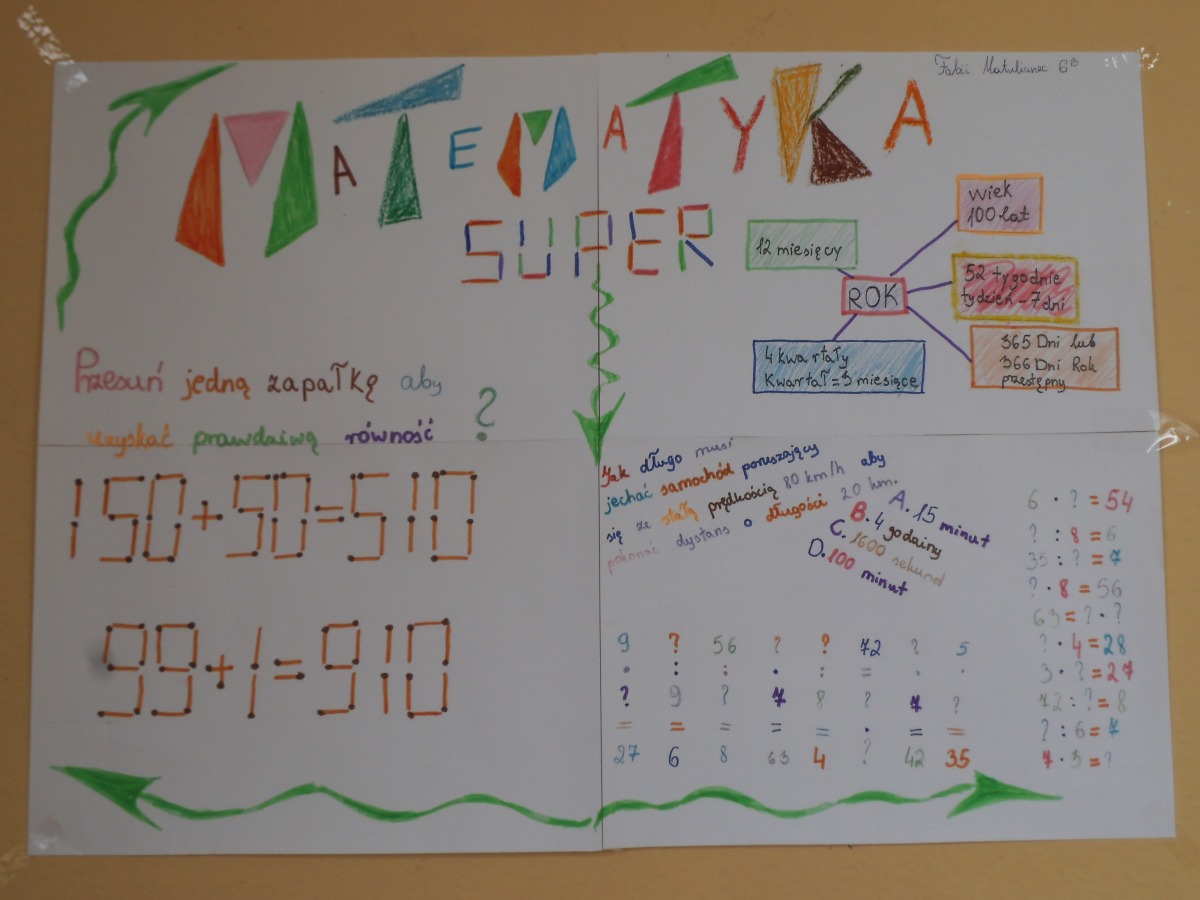 MATEMATYKA
6B
SUPER
12 miesięcy
Wiek
100 lat
ROK
52 tygodnie
tydzień - 7 dni
4 kwartały
Kwartał = 3 miesiące
365 Dni lub
366 Dni Rok
przestępny
Przesuń jedną zapałkę aby
uzyskać prawdziwą równość ?
150+50=510
99+1=910
Jak długo musi
jechać samochód poruszający
się ze stałą prędkością 80 km/h aby
pokonać dystans o długości 20 km.
A. 15 minut
B. 4 godziny
C. 1600 sekund
D. 100 minut
6 · ? = 54
? : 8 = 6
35 : ? = 7
? · 8 = 56
63 = ? · ?
? · 4 = 28
3 · ? = 27
72 : ? = 8
? : 6 = 7
7 · 3 = ?
9 ? 56 ? ? 72 ? 5
· : : · : = · ·
? 9 ? 7 8 ? 7 ?
= = = = = · = =
27 6 8 63 4 ? 42 35